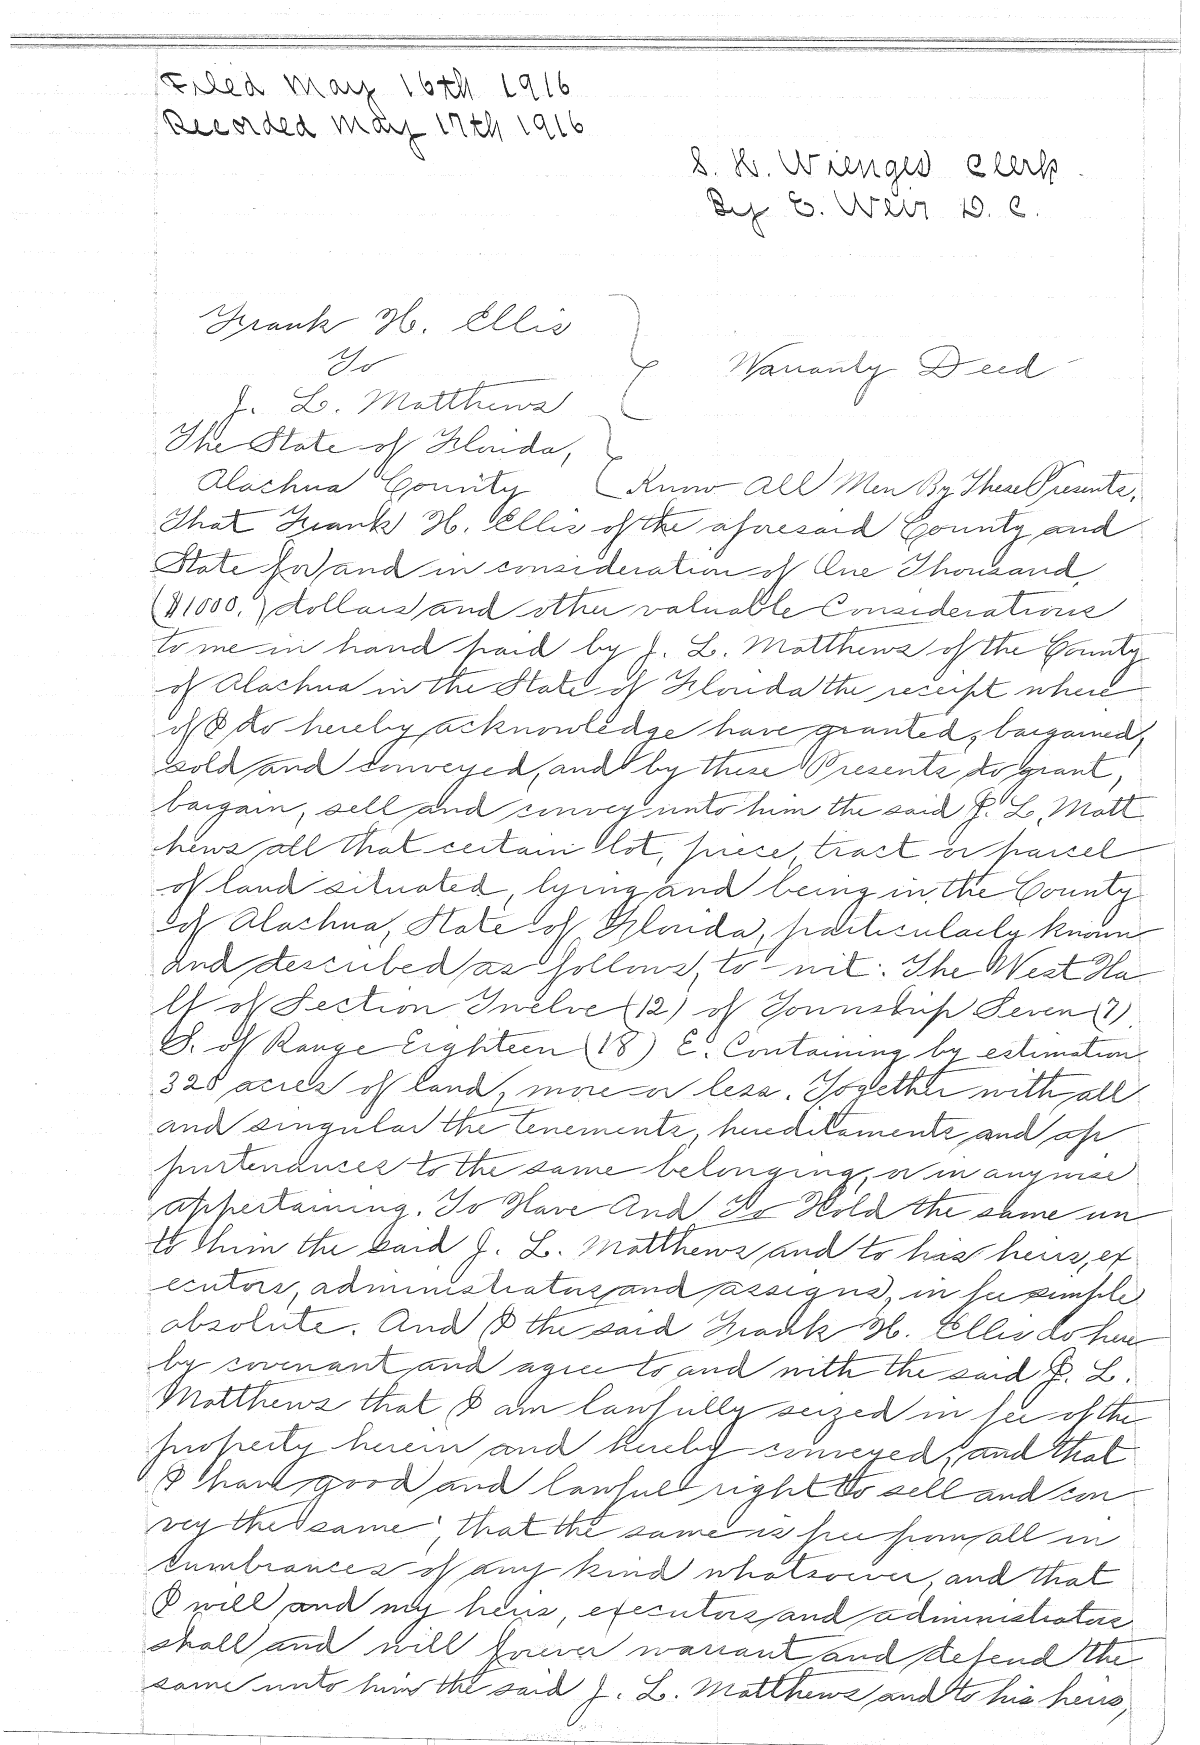 Filed May 16th 1916
Recorded May 17th 1916
S. H. Wienges Clerk
By E. Weir D. C.
Frank H. Ellis
To
Warranty Deed
J. L. Matthews
The State of Florida,
Alachua County Know All Men By These Presents,
That Frank H. Ellis of the aforesaid County and
State for and in consideration of One Thousand
($1000.) dollars and other valuable Considerations
to me in hand paid by J. L. Matthews of the County
of Alachua in the State of Florida the receipt where
of I do hereby acknowledge have granted, bargained,
sold and conveyed, and by these Presents do grant,
bargain, sell and convey unto him the said J. L. Matt
hews all that certain lot, piece, tract or parcel
of land situated, lying and being in the County
of Alachua, State of Florida, particularly known
and described as follows, to-wit: The West Ha
lf of Section Twelve (12) of Township Seven (7)
S. of Range Eighteen (18) E. Containing by estimation
320 acres of land, more or less. Together with all
and singular the tenements, hereditaments and ap
purtenances to the same belonging, or in anywise
appertaining. To Have And To Hold the same un
to him the said J. L. Matthews and to his heirs, ex
ecutors, administrators and assigns, in fee simple
absolute. And I the said Frank H. Ellis do here
by covenant and agree to and with the said J. L.
Matthews that I am lawfully seized in fee of the
property herein and hereby conveyed, and that
I have good and lawful right to sell and con
vey the same; that the same is free from all in
cumbrances of any kind whatsoever, and that
I will and my heirs, executors and administrators
shall and will forever warrant and defend the
same unto him the said J. L. Matthews and to his heirs,